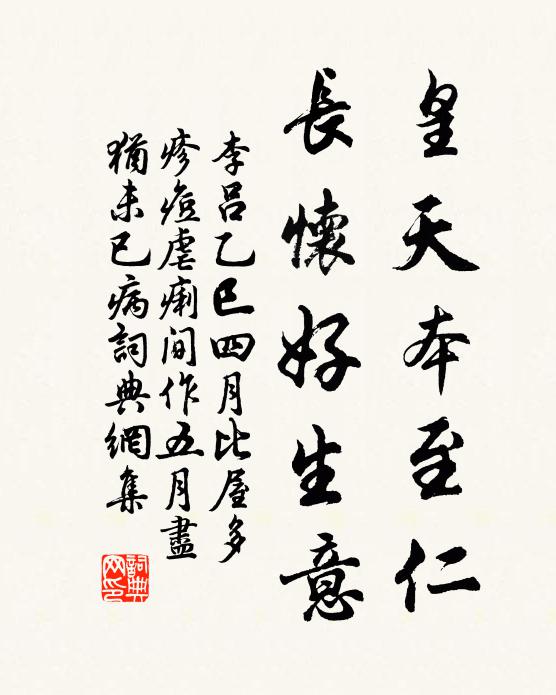 皇天本至仁
長懷好生意
李呂乙巳四月比屋多
疹痘虐痢间作五月盡
猶未已病詞典網集
詞典网印